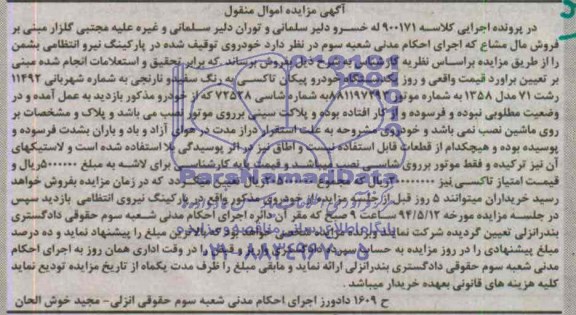 آگهی مزایده اموال منقول
در پرونده اجرایی کلاسه ۹۰۰۱۷۱ له خسرو دلیر سلمانی و توران دلیر سلمانی و غیره علیه مجتبی گلزار مبنی بر
فروش مال مشاع که اجرای احکام مدنی شعبه سوم در نظر دارد خودروی توقیف شده در پارکینگ نیرو انتظامی بشمن
را از طریق مزایده براساس نظریه کارشناس بشرح ذیل بفروش برساند که برابر تحقیق و استعلامات انجام شده مبنی
بر تعیین برآورد قیمت واقعی و روز یکدستگاه خودرو پیکان تاکسی به رنگ سفید و نارنجی به شماره شهربانی ۱۱۴۹۲
رشت ۷۱ مدل ۱۳۵۸ به شماره موتور به شماره شاسی ۷۲۵۳۸ که از خودرو مذکور بازدید به عمل آمده و در
وضعیت مطلوبی نبوده و فرسوده و از کار افتاده بوده و پلاک سیتی برروی موتور نصب می باشد و پلاک و مشخصات بر
روی ماشین نصب نمی باشد و خودروی مشروحه به علت استقرار دراز مدت در هوای آزاد و باد و باران بشدت فرسوده و
پوسیده بوده و هیچکدام از قطعات قابل استفاده نیست و اطاق نیز در اثر پوسیدگی بلا استفاده شده است و لاستیکهای
آن نیز ترکیده و فقط موتور برروی شاسی نصب میباشد و قیمت پایه کارشناسی برای لاشه به مبلغ ۵۰۰۰۰۰۰ ریال و
قیمت امتیاز تاکسی نیز ریال که مجموع ریال تعیین میگردد که در زمان مزایده بفروش خواهد
رسید خریداران میتوانند ۵ روز قبل از جلسه مزایده از خودروی مذکور واقع در پارکینگ نیروی انتظامی بازدید سپس
در جلسه مزایده مورخه ۹۴/۵/۱۲ ساعت ۹ صبح که مقر آن دائره اجرای احکام مدنی شعبه سوم حقوقی دادگستری
بندرانزلی تعیین گردیده شرکت نمایند برنده مزایده شخصی خواهد بود که بالاترین مبلغ را پیشنهاد نماید و ده درصد
مبلغ پیشنهادی را در روز مزایده به حساب سپرده دادگستری واریز و فیش را در وقت اداری همان روز به اجرای احکام
مدنی شعبه سوم حقوقی دادگستری بندرانزلی ارائه نماید و مابقی مبلغ را ظرف مدت یکماه از تاریخ مزایده تودیع نماید
کلیه هزینه های قانونی بعهده خریدار میباشد.
ح ۱۶۰۹ دادورز اجرای احکام مدنی شعبه سوم حقوقی انزلی- مجید خوش الحان
ParsNamadData
پایگاه اطلاع رسانی مناقصه و مزایده
۰۲۱-۸۸۳۴۹۶۷۰-۵